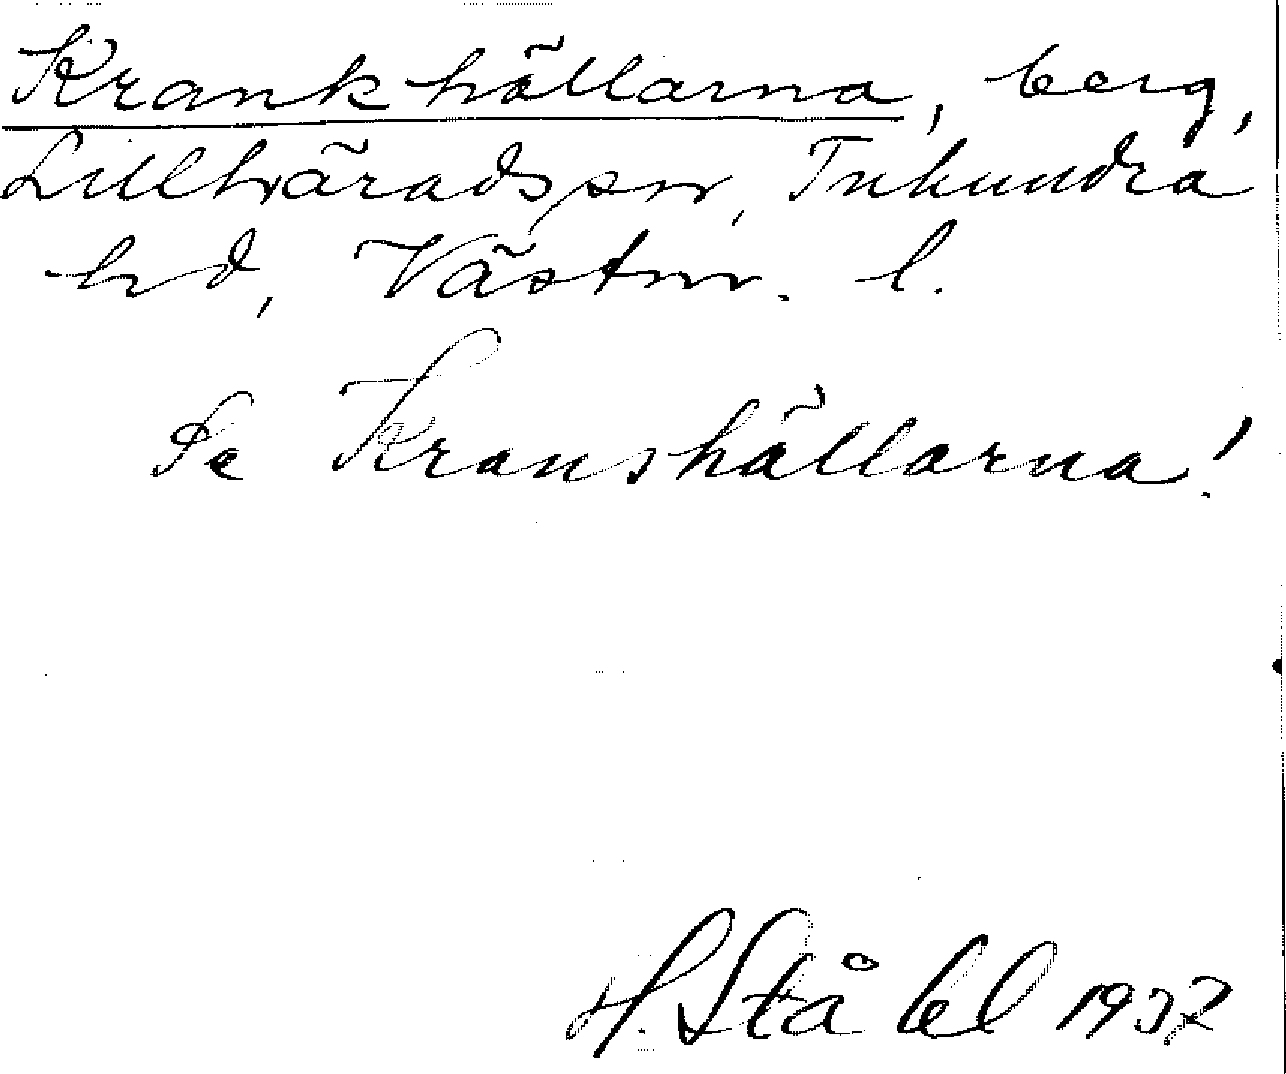 Krankhällarna, berg,
Lillhärads sn, Tuhundra
hd, Västm. l.
Se Kranshällarna!
H. Ståhl 1937